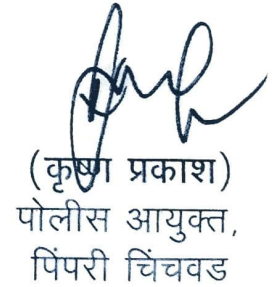 (कृष्ण प्रकाश)
पोलीस आयुक्त,
पिंपरी चिंचवड